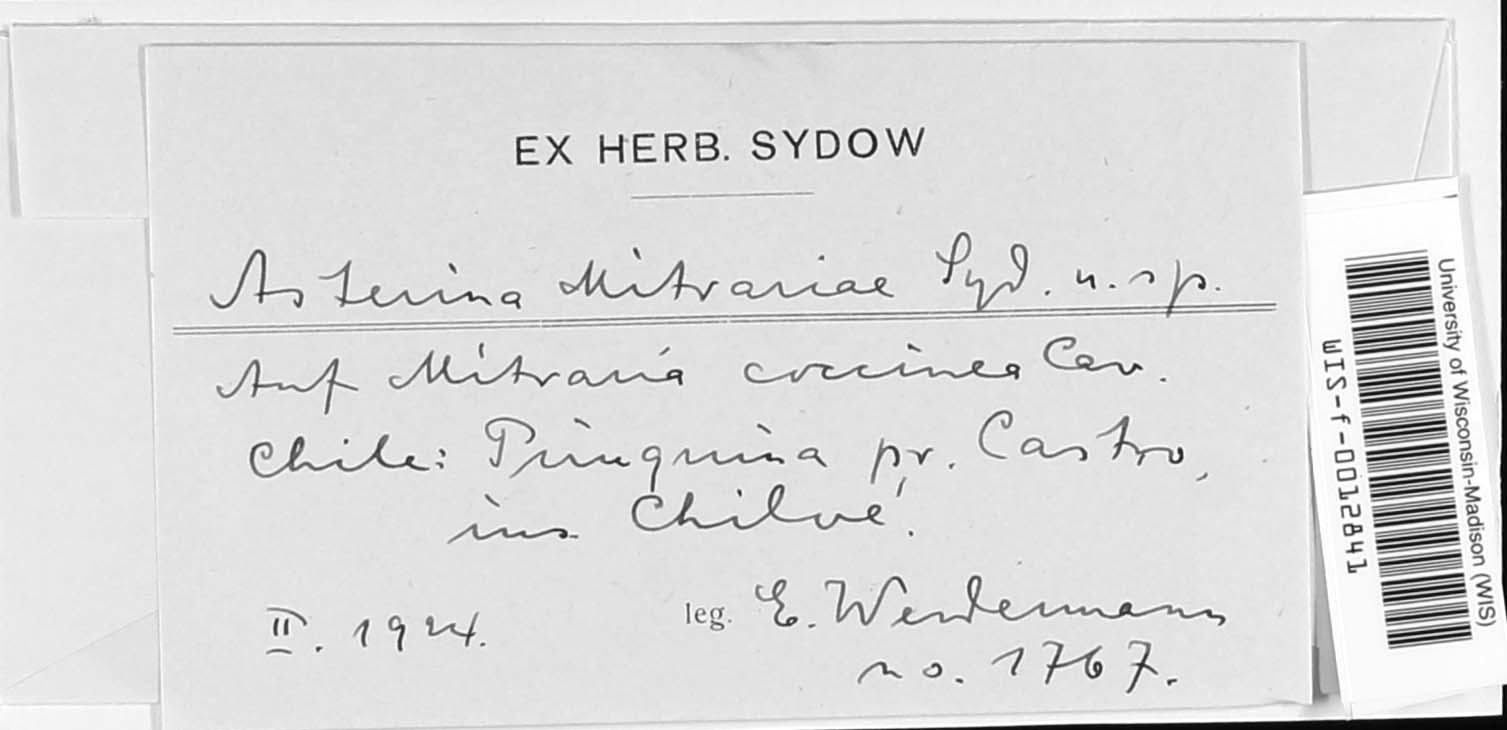 EX HERB. SYDOW
Asterina Mitrariae Syd. n. sp.
Auf Mitraria coccinea Cav.
Chile: Piruquina pr. Castro,
ins. Chiloé.
II. 1924.
leg. E. Werdermann
no. 1767.
University of Wisconsin-Madison (WIS)
WIS-f-0012841